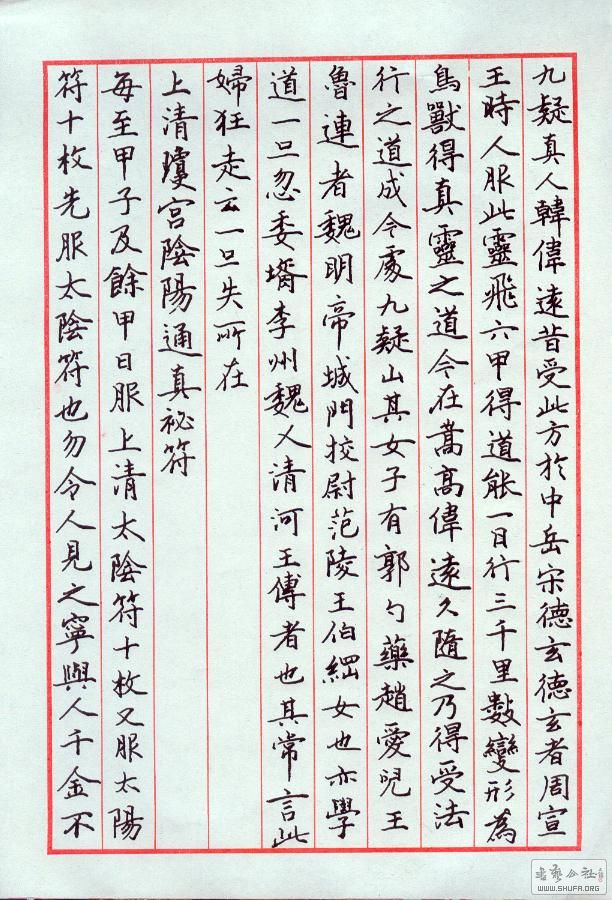 九疑真人韓偉遠昔受此方於中岳宋德玄德玄者周宣
王時人服此靈飛六甲得道能一日行三千里數變形為
鳥獸得真靈之道今在嵩高偉遠久隨之乃得受法
行之道成今處九疑山其女子有郭勺藥趙愛兒王
魯連者魏明帝城門挍尉范陵王伯綱女也亦學
道一旦忽委壻李州魏人清河王傳者也其常言此
婦狂走云一旦失所在
上清瓊宮陰陽通真祕符
每至甲子及餘甲日服上清太陰符十枚又服太陽
符十枚先服太陰符也勿令人見之寧與人千金不
書藝公社
WWW.SHUFA.ORG